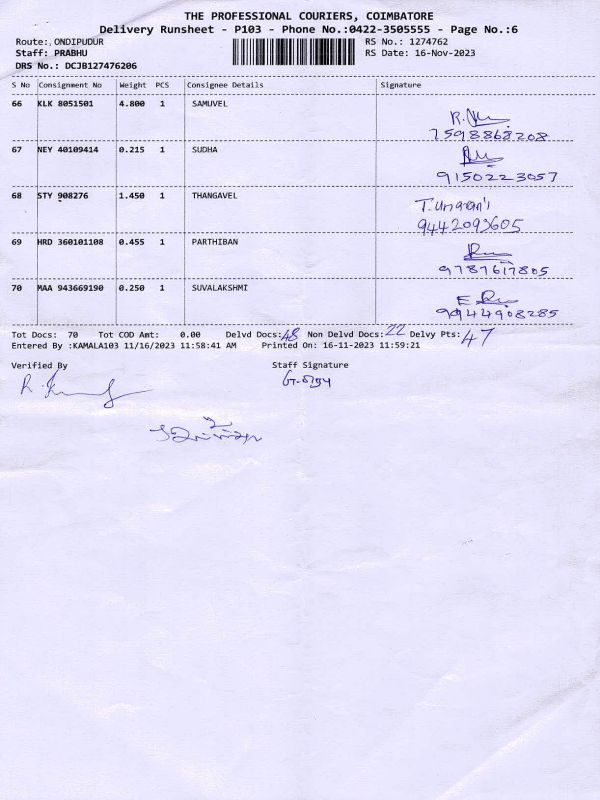 THE PROFESSIONAL COURIERS, COIMBATORE
Delivery Runsheet - P103 - Phone No.:0422-3505555 - Page No.:6
Route: ONDIPUDUR RS No.: 1274762
Staff: PRABHU RS Date: 16-Nov-2023
DRS No.: DCJB127476206
S No Consignment No Weight PCS Consignee Details Signature
66 KLK 8051501 4.800 1 SAMUVEL
7598868208
67 NEY 40109414 0.215 1 SUDHA
9150223057
68 STY 908276 1.450 1 THANGAVEL
9442093605
69 HRD 360101108 0.455 1 PARTHIBAN
9787617805
70 MAA 943669190 0.250 1 SUVALAKSHMI
9944908285
Tot Docs: 70 Tot COD Amt: 0.00 Delvd Docs: 48 Non Delvd Docs: 22 Delvy Pts: 47
Entered By :KAMALA103 11/16/2023 11:58:41 AM Printed On: 16-11-2023 11:59:21
Verified By Staff Signature